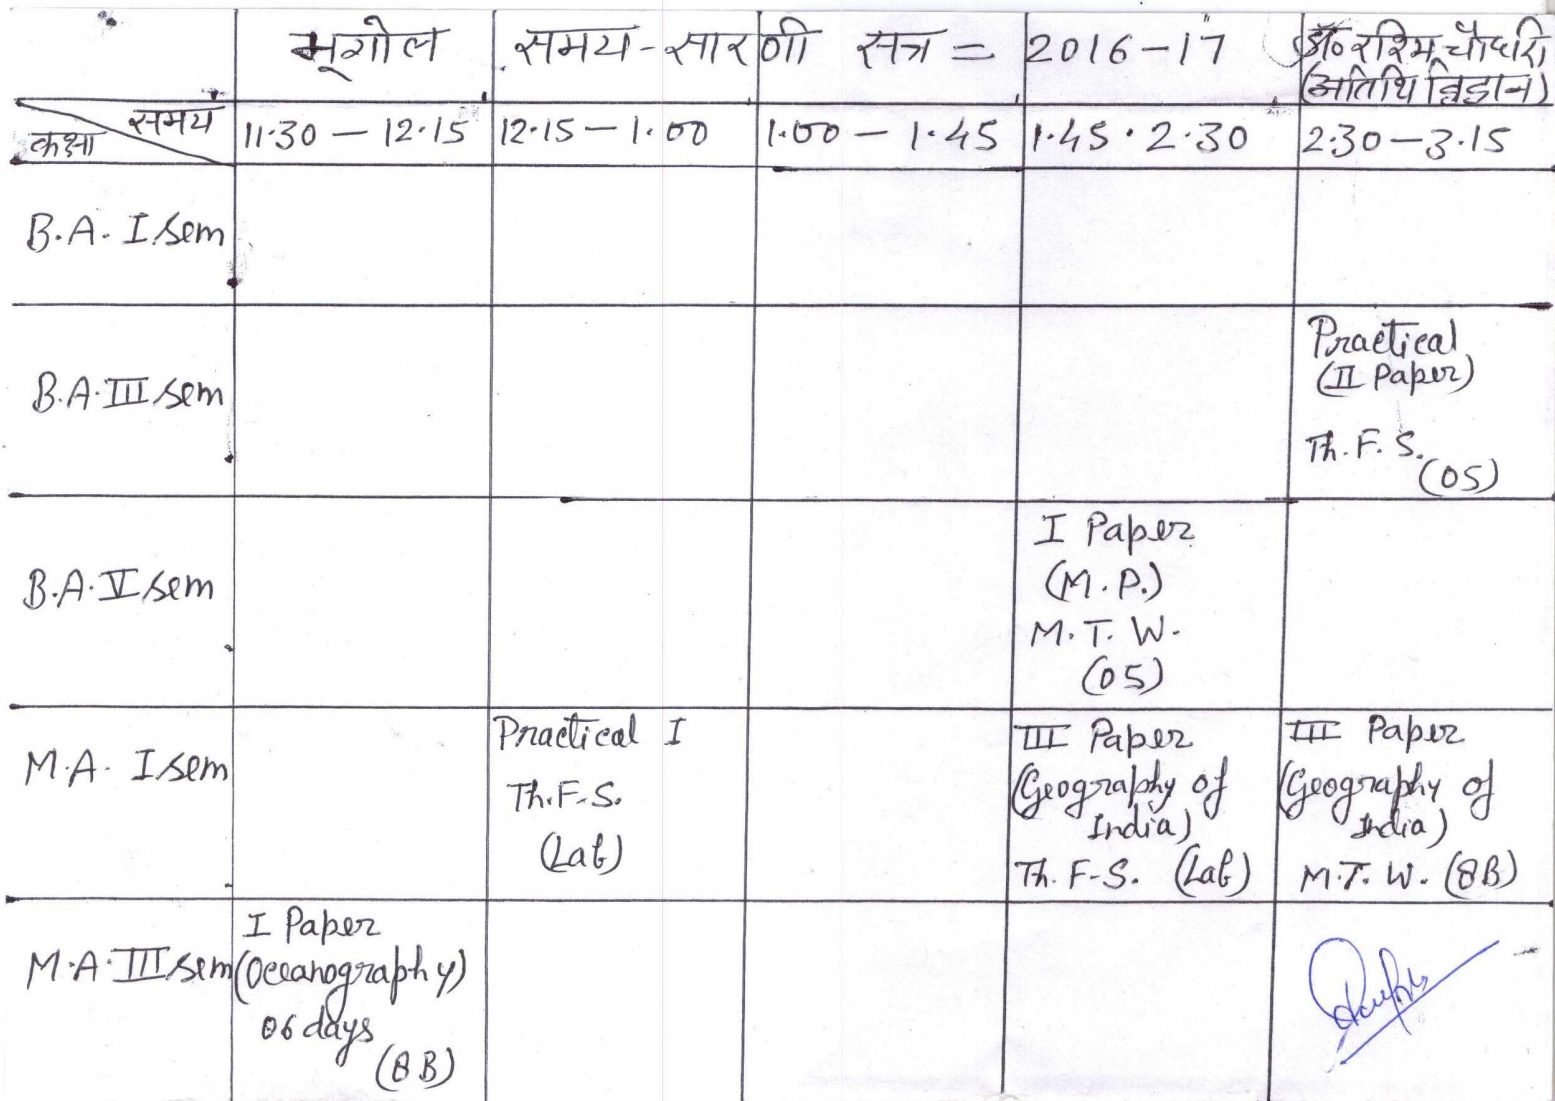 भूगोल समय-सारणी सत्र = 2016-17 डॉ० रश्मि चौधरी
(अतिथि विद्वान)
समय
कक्षा
11.30 - 12.15 12.15 - 1.00 1.00 - 1.45 1.45 . 2.30 2.30 - 3.15
B.A. I sem
B.A. III sem
Practical
(II Paper)
Th. F. S.
(05)
B.A. V sem
I Paper
(M. P.)
M. T. W.
(05)
M.A. I sem
Practical I
Th. F. S.
(Lab)
III Paper
(Geography of
India)
Th. F-S. (Lab)
III Paper
(Geography of
India)
M.T. W. (8B)
M.A. III sem
I Paper
(Oceanography)
06 days
(8B)